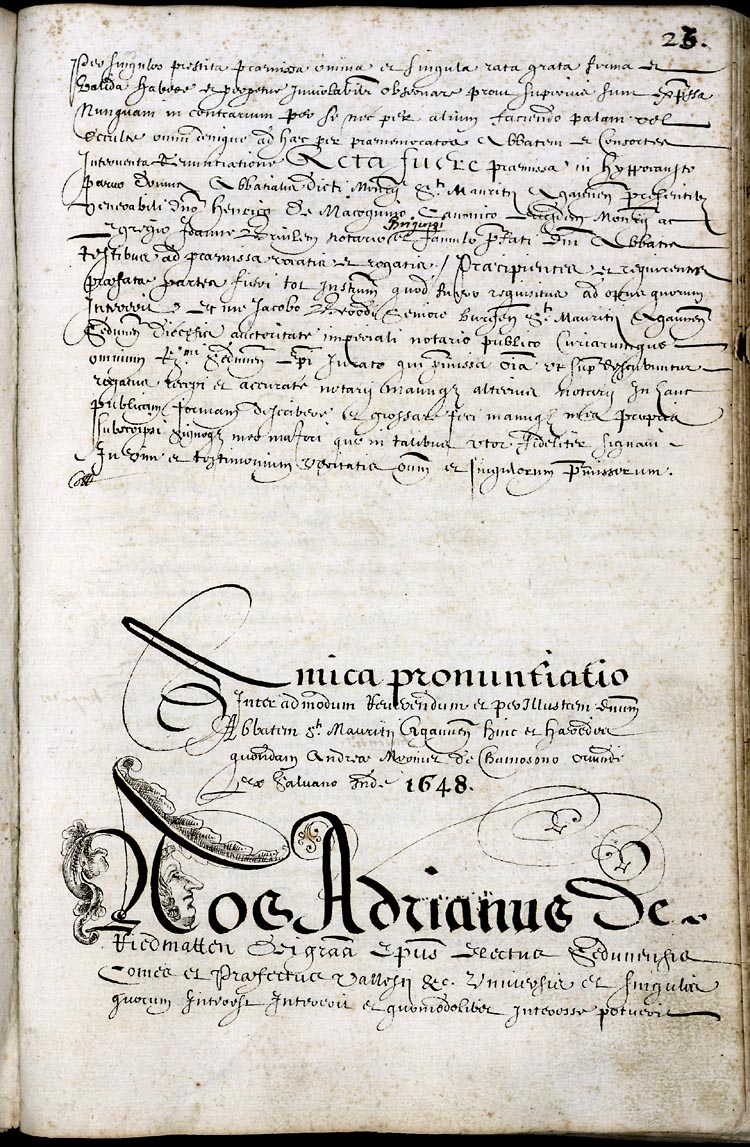 25.
Per singulos prestita praemissa omnia et singula rata grata firma et
valida habere et perpetue inviolabiliter observare prout superius sunt expressa
Nunquam in contrarium per se nec per alium faciendo palam vel
occulte omni denique ad haec per praenominatos Abbatem et Consortes
Interventa Renuntiatione Acta fuere praemissa in Hyppocausto
parvo domus Abbatialis dicti Mon̄rij Sᵗⁱ Mauritij Agaunen̄ presentib
venerabili Dn̄o Henrico De Macognino Canonico eiusdem Mon̄rij ac
Egregio Joanne notario et famulo p̄fati Dn̄i Abbatis
Briguesi
testibus ad praemissa vocatis et rogatis / Praecipientes et requirentes
praefatae partes fieri tot Instrum̄ quod fuero requisitus ad opus quorum
Intererit. Et me Jacobo De Bons Seniore burgen̄ Sᵗⁱ Mauritij Agaunen̄
Sedunen̄ Diecesis auctoritate imperiali notario publico Curiarumque
omnium R.ᵐⁱ Sedunen̄ Ep̄i Jurato qui p̄missa oīa ut sup̄ describuntur
rogatus recepi et accurate notarij manuq alterius notarij In hanc
publicam formam describere et grossare feci manuq mea propria
subscripsi signoq meo maiori quo in talibus utor fideliter signavi
In vim et testimonium veritatis om̄ et singulorum p̄missorum.
Amica pronuntiatio
Inter admodum Reverendum et per Illustrem dnum
Abbatem Sᵗⁱ Mauritij Agaunen̄ hinc et Haeredes
quondam Andreae de Chamosono oriundi
ex Salvano Inde 1648.
Nos Adrianus De
Riedmatten Dei grā̄ Ep̄us Electus Sedunensis
Comes et Praefectus Vallesij &c. Universis et singulis
quorum Interest Intererit et quomodolibet Interesse poterit